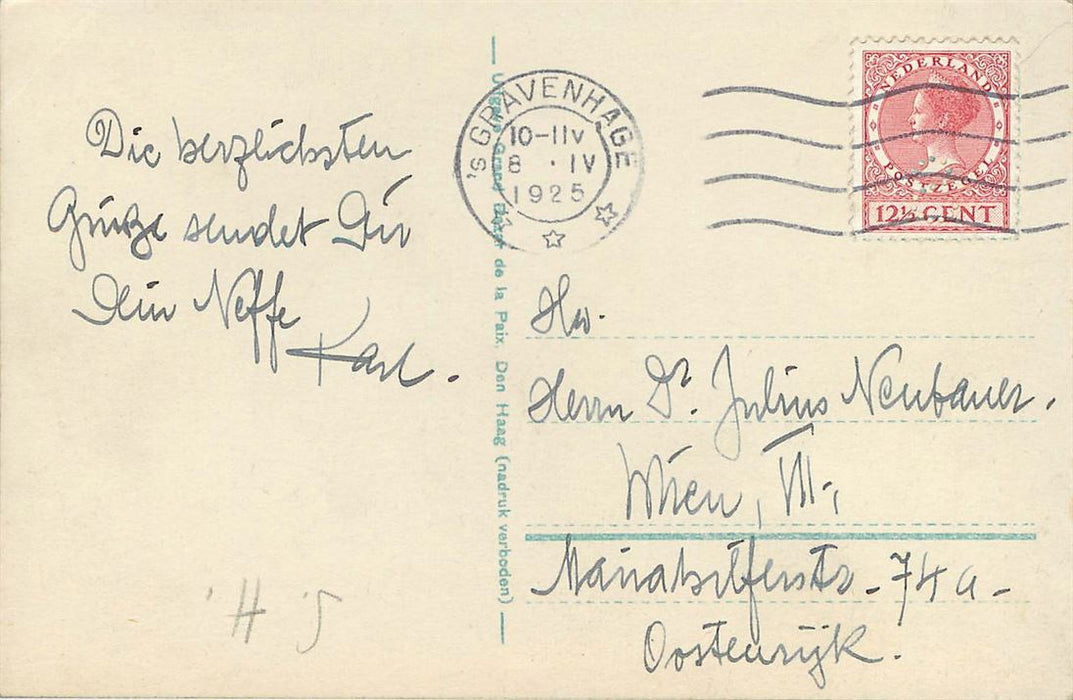 Die herzlichsten
Grüße sendet Dir
Dein Neffe
Karl.
'sGRAVENHAGE
10-11V
8 . IV
1925
NEDERLAND
POSTZEGEL
12½ CENT
Uitgave Grand Bazar de la Paix, Den Haag (nadruk verboden)
Hw.
Herrn Dr. Julius Neubauer.
Wien, VII.,
Mariahilferstr. 74 a.
Oostenrijk.